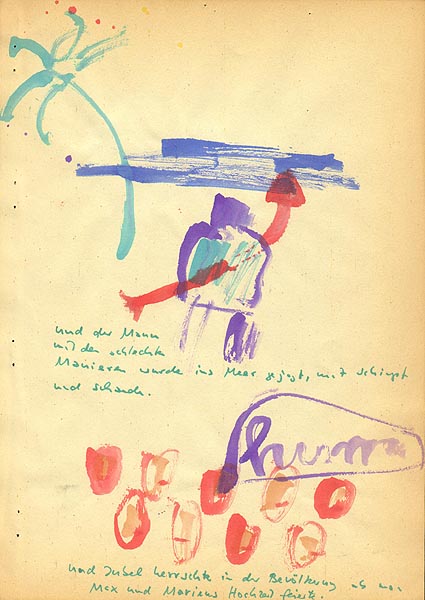 und der Mann
mit den schlechte
Manieren wurde ins Meer gejagt, mit schimpf
und schande.
hurra
und Jubel herrschte in der Bevölkerung als man
Max und Marians Hochzeit feierte.